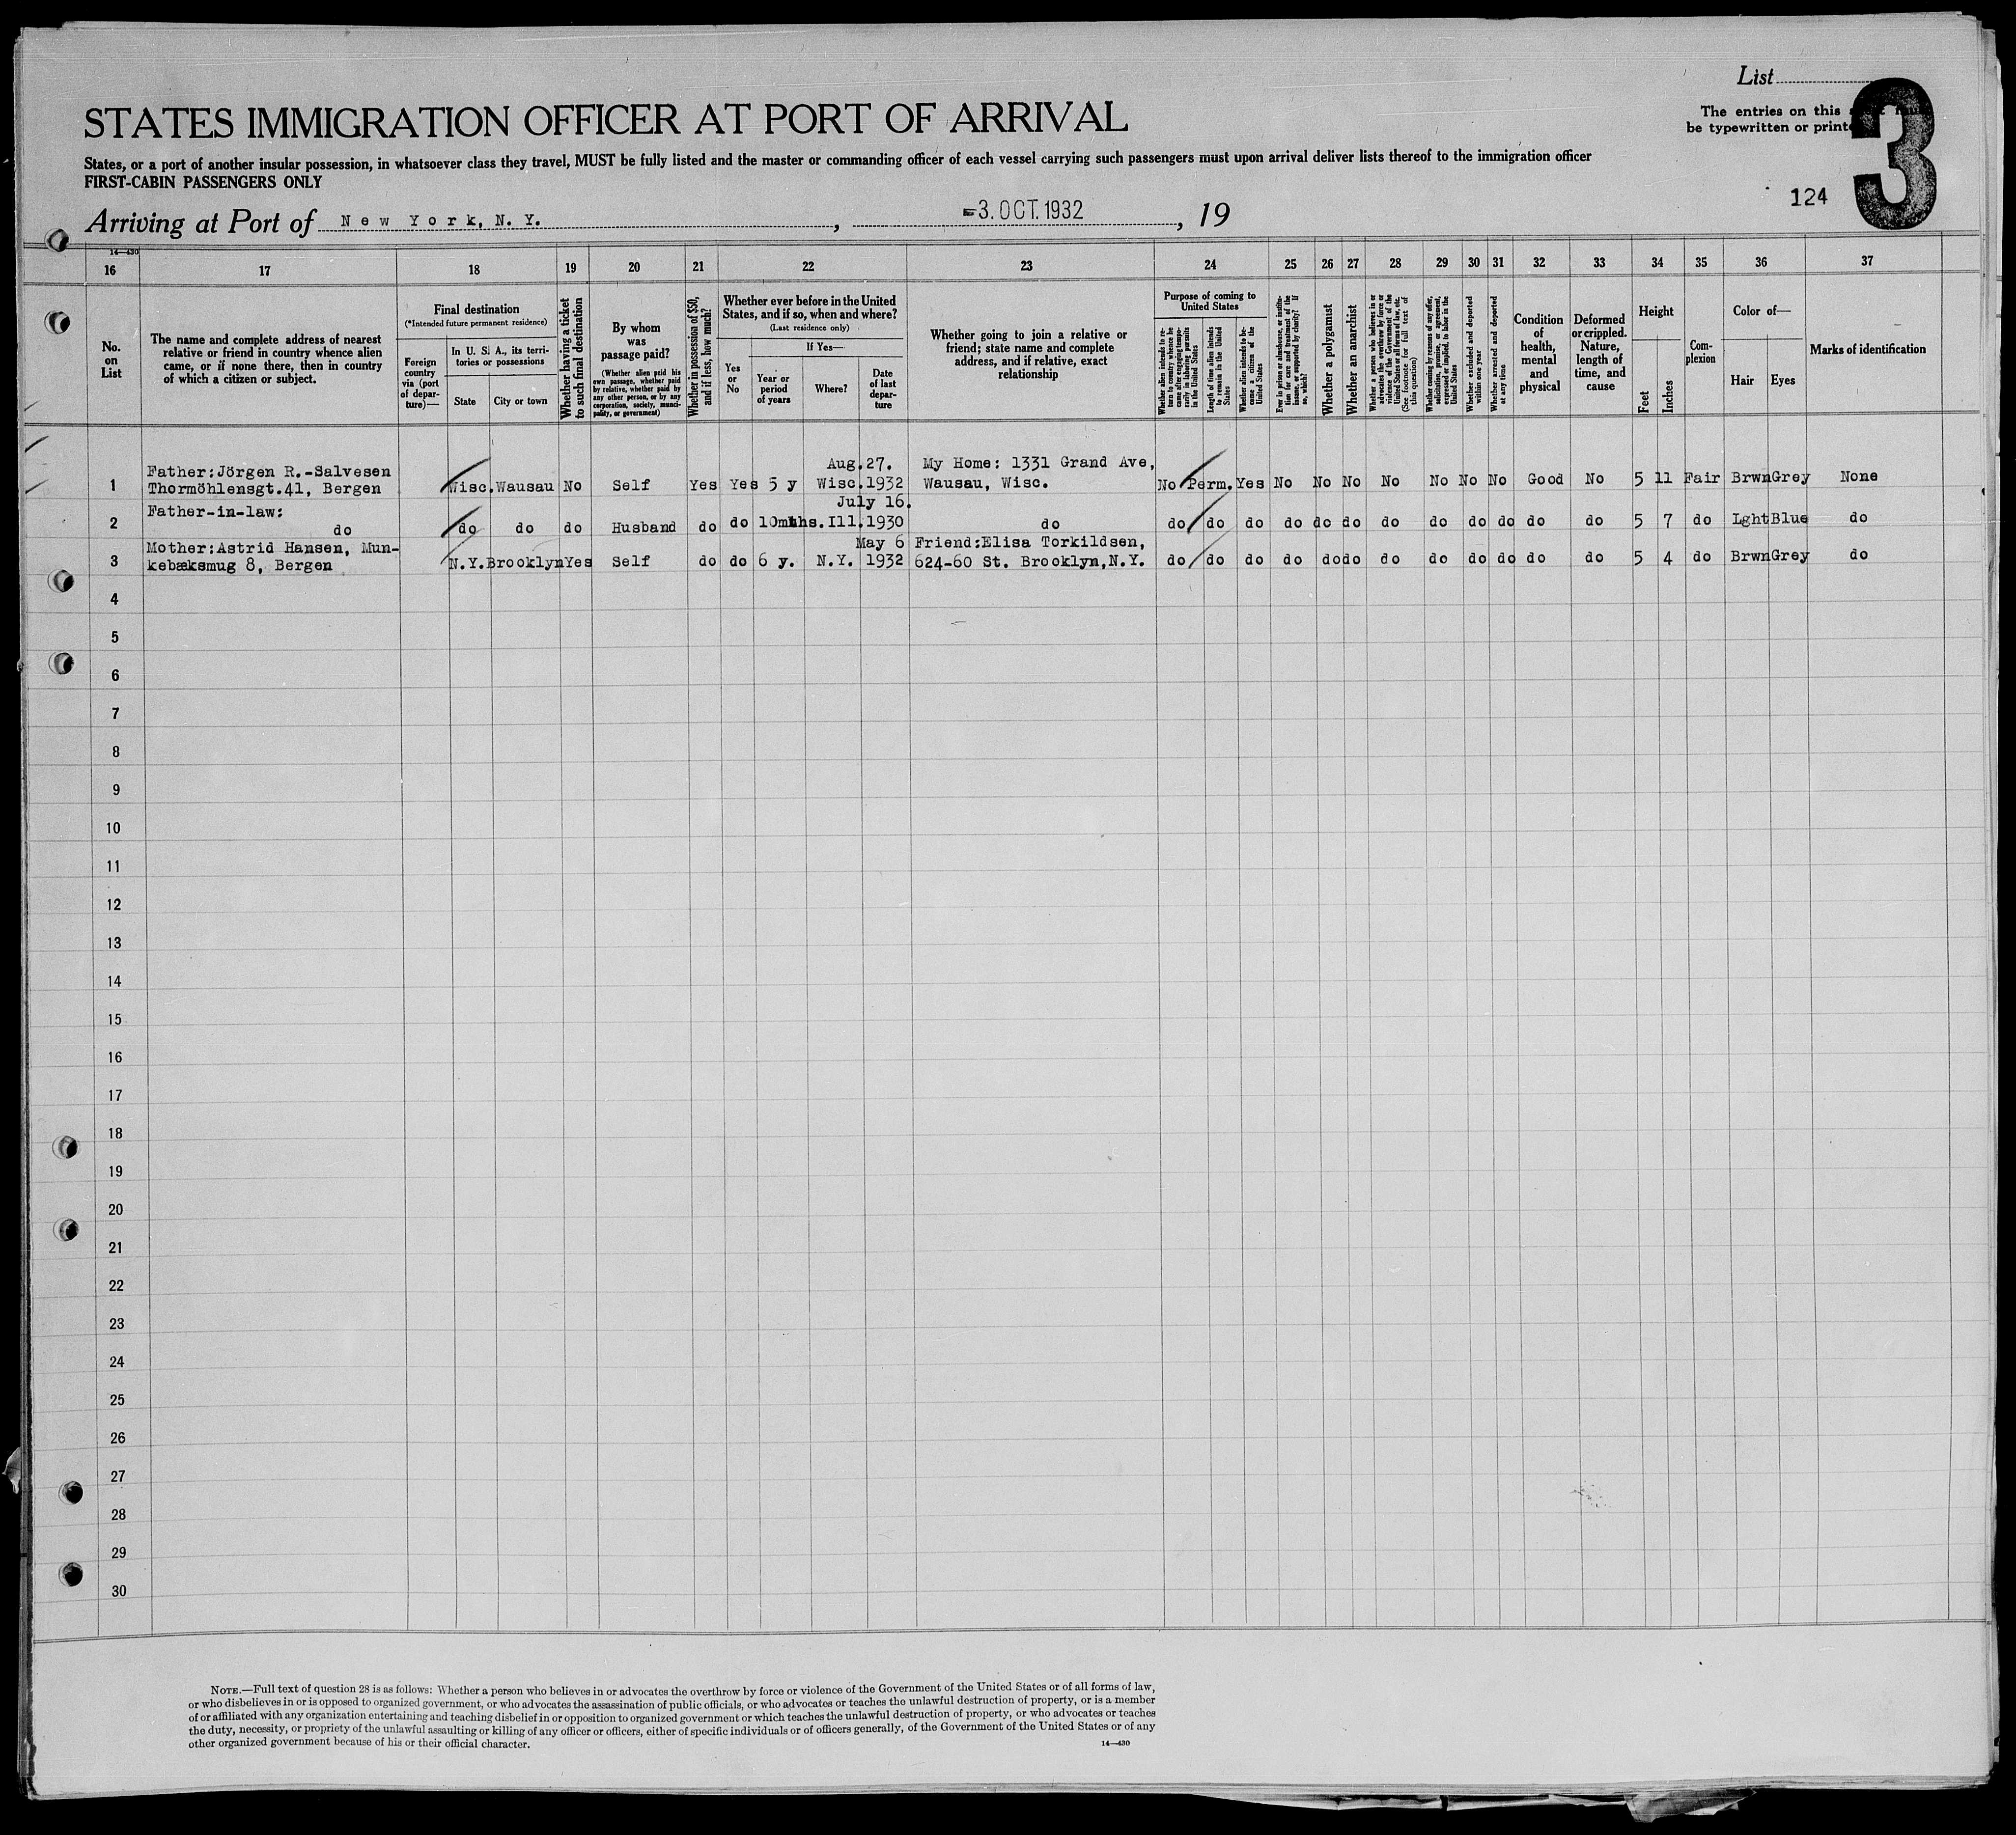 List
3
The entries on this
be typewritten or
STATES IMMIGRATION OFFICER AT PORT OF ARRIVAL
States, or a port of another insular possession, in whatsoever class they travel, MUST be fully listed and the master or commanding officer of each vessel carrying such passengers must upon arrival deliver lists thereof to the immigration officer
FIRST-CABIN PASSENGERS ONLY
124
Arriving at Port of New York, N. Y. , -3. OCT. 1932 , 19
14—430
16 17 18 19 20 21 22 23 24 25 26 27 28 29 30 31 32 33 34 35 36 37
No. on List
The name and complete address of nearest relative or friend in country whence alien came, or if none there, then in country of which a citizen or subject.
Final destination
(*Intended future permanent residence)
Foreign country via (port of departure)—
In U. S. A., its territories or possessions
State
City or town
Whether having a ticket to such final destination
By whom was passage paid?
(Whether alien paid his own passage, whether paid by relative, whether paid by any other person, or by any corporation, society, municipality, or government)
Whether in possession of $50, and if less, how much?
Whether ever before in the United States, and if so, when and where?
(Last residence only)
Yes or No
If Yes—
Year or period of years
Where?
Date of last departure
Whether going to join a relative or friend; state name and complete address, and if relative, exact relationship
Purpose of coming to United States
Whether alien intends to return to country whence he came after engaging temporarily in laboring pursuits in the United States
Length of time alien intends to remain in the United States
Whether alien intends to become a citizen of the United States
Ever in prison or almshouse, or institution for care and treatment of the insane, or supported by charity? If so, which?
Whether a polygamist
Whether an anarchist
Whether a person who believes in or advocates the overthrow by force or violence of the Government of the United States or all forms of law, etc. (See footnote for full text of this question)
Whether coming by reason of any offer, solicitation, promise, or agreement, expressed or implied, to labor in the United States
Whether excluded and deported within one year
Whether arrested and deported at any time
Condition of health, mental and physical
Deformed or crippled. Nature, length of time, and cause
Height
Feet
Inches
Complexion
Color of—
Hair
Eyes
Marks of identification
Father:Jörgen R.-Salvesen Aug.27. My Home: 1331 Grand Ave,
1 Thormöhlensgt.41, Bergen Wisc. Wausau No Self Yes Yes 5 y Wisc. 1932 Wausau, Wisc. No Perm. Yes No No No No No No No Good No 5 11 Fair Brwn Grey None
Father-in-law: July 16.
2 do do do do Husband do do 10mths. Ill. 1930 do do do do do do do do do do do do do 5 7 do Lght Blue do
Mother:Astrid Hansen, Mun- May 6 Friend:Elisa Torkildsen,
3 kebæksmug 8, Bergen N.Y. Brooklyn Yes Self do do 6 y. N.Y. 1932 624-60 St. Brooklyn,N.Y. do do do do do do do do do do do do 5 4 do Brwn Grey do
4
5
6
7
8
9
10
11
12
13
14
15
16
17
18
19
20
21
22
23
24
25
26
27
28
29
30
NOTE.—Full text of question 28 is as follows: Whether a person who believes in or advocates the overthrow by force or violence of the Government of the United States or of all forms of law,
or who disbelieves in or is opposed to organized government, or who advocates the assassination of public officials, or who advocates or teaches the unlawful destruction of property, or is a member
of or affiliated with any organization entertaining and teaching disbelief in or opposition to organized government or which teaches the unlawful destruction of property, or who advocates or teaches
the duty, necessity, or propriety of the unlawful assaulting or killing of any officer or officers, either of specific individuals or of officers generally, of the Government of the United States or of any
other organized government because of his or their official character.
14—430